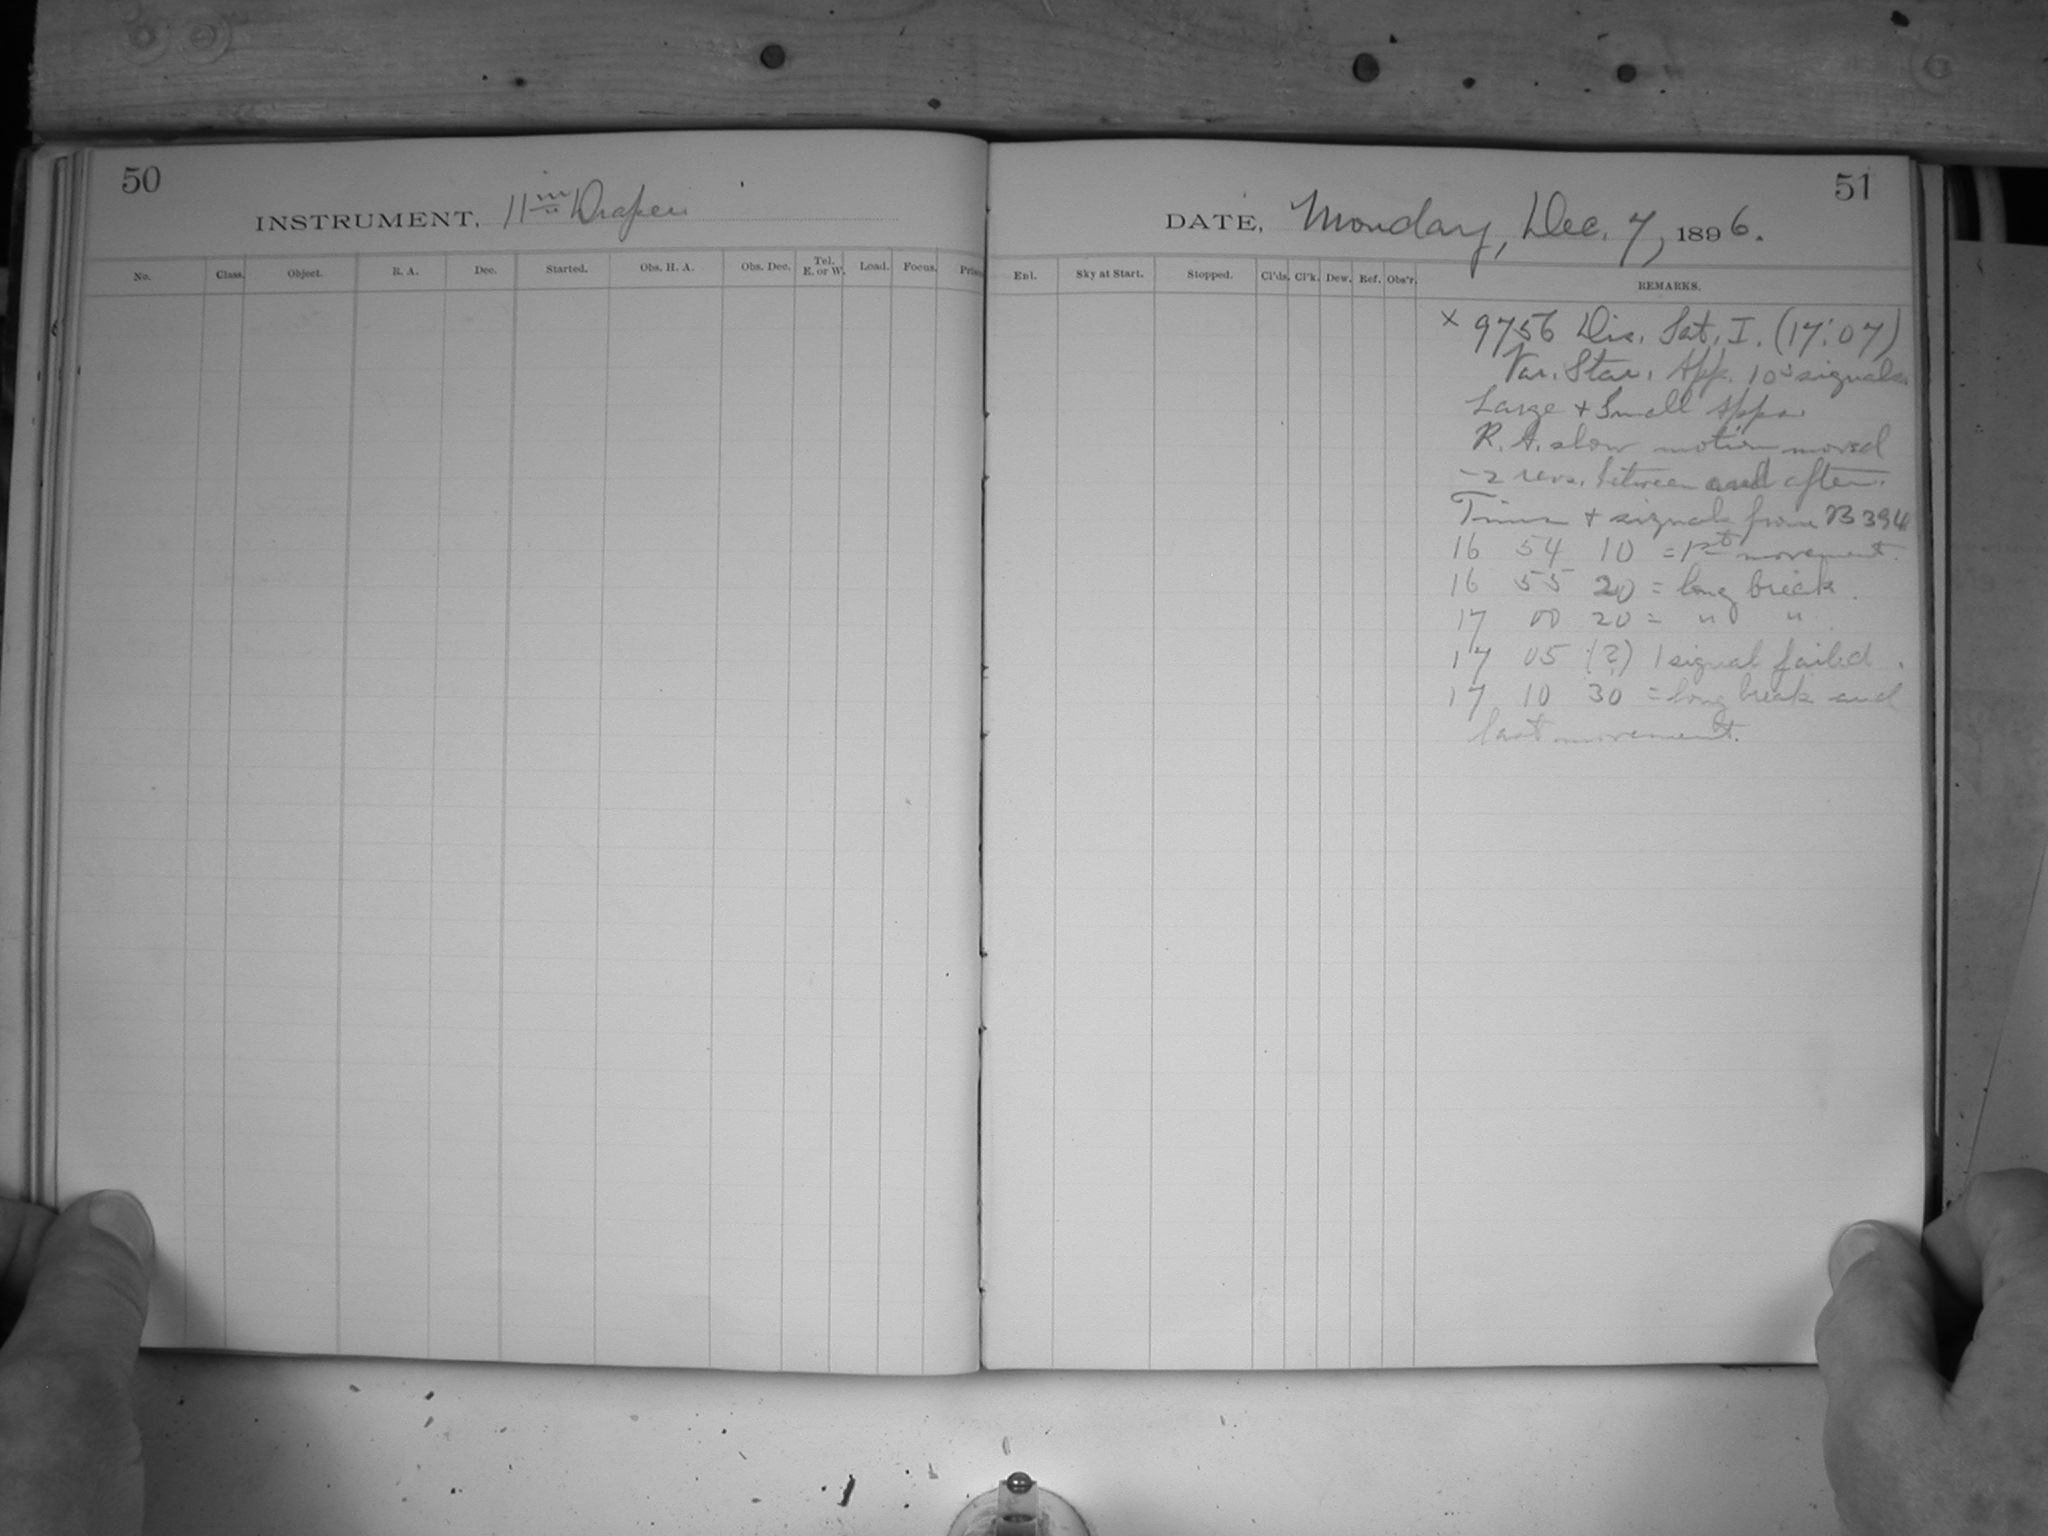 50
INSTRUMENT, 11 in Draper
No. Class. Object. R. A. Dec. Started. Obs. H. A. Obs. Dec. Tel. E. or W. Load. Focus. Prism
51
DATE, Monday, Dec. 7, 1896.
Enl. Sky at Start. Stopped. Cl'ds. Cl'k. Dew. Ref. Obs'r. REMARKS.
x 9756 Dis. Sat. I. (17:07)
Var. Star. App. 10s signals.
Large + Small Apps.
R. A. slow motion moved
-2 revs. between and after.
Times + signals from B 394
16 54 10 = 1st movement.
16 55 20 = long break.
17 00 20 = " "
17 05 (?) 1 signal failed.
17 10 30 = long break and
last movement.